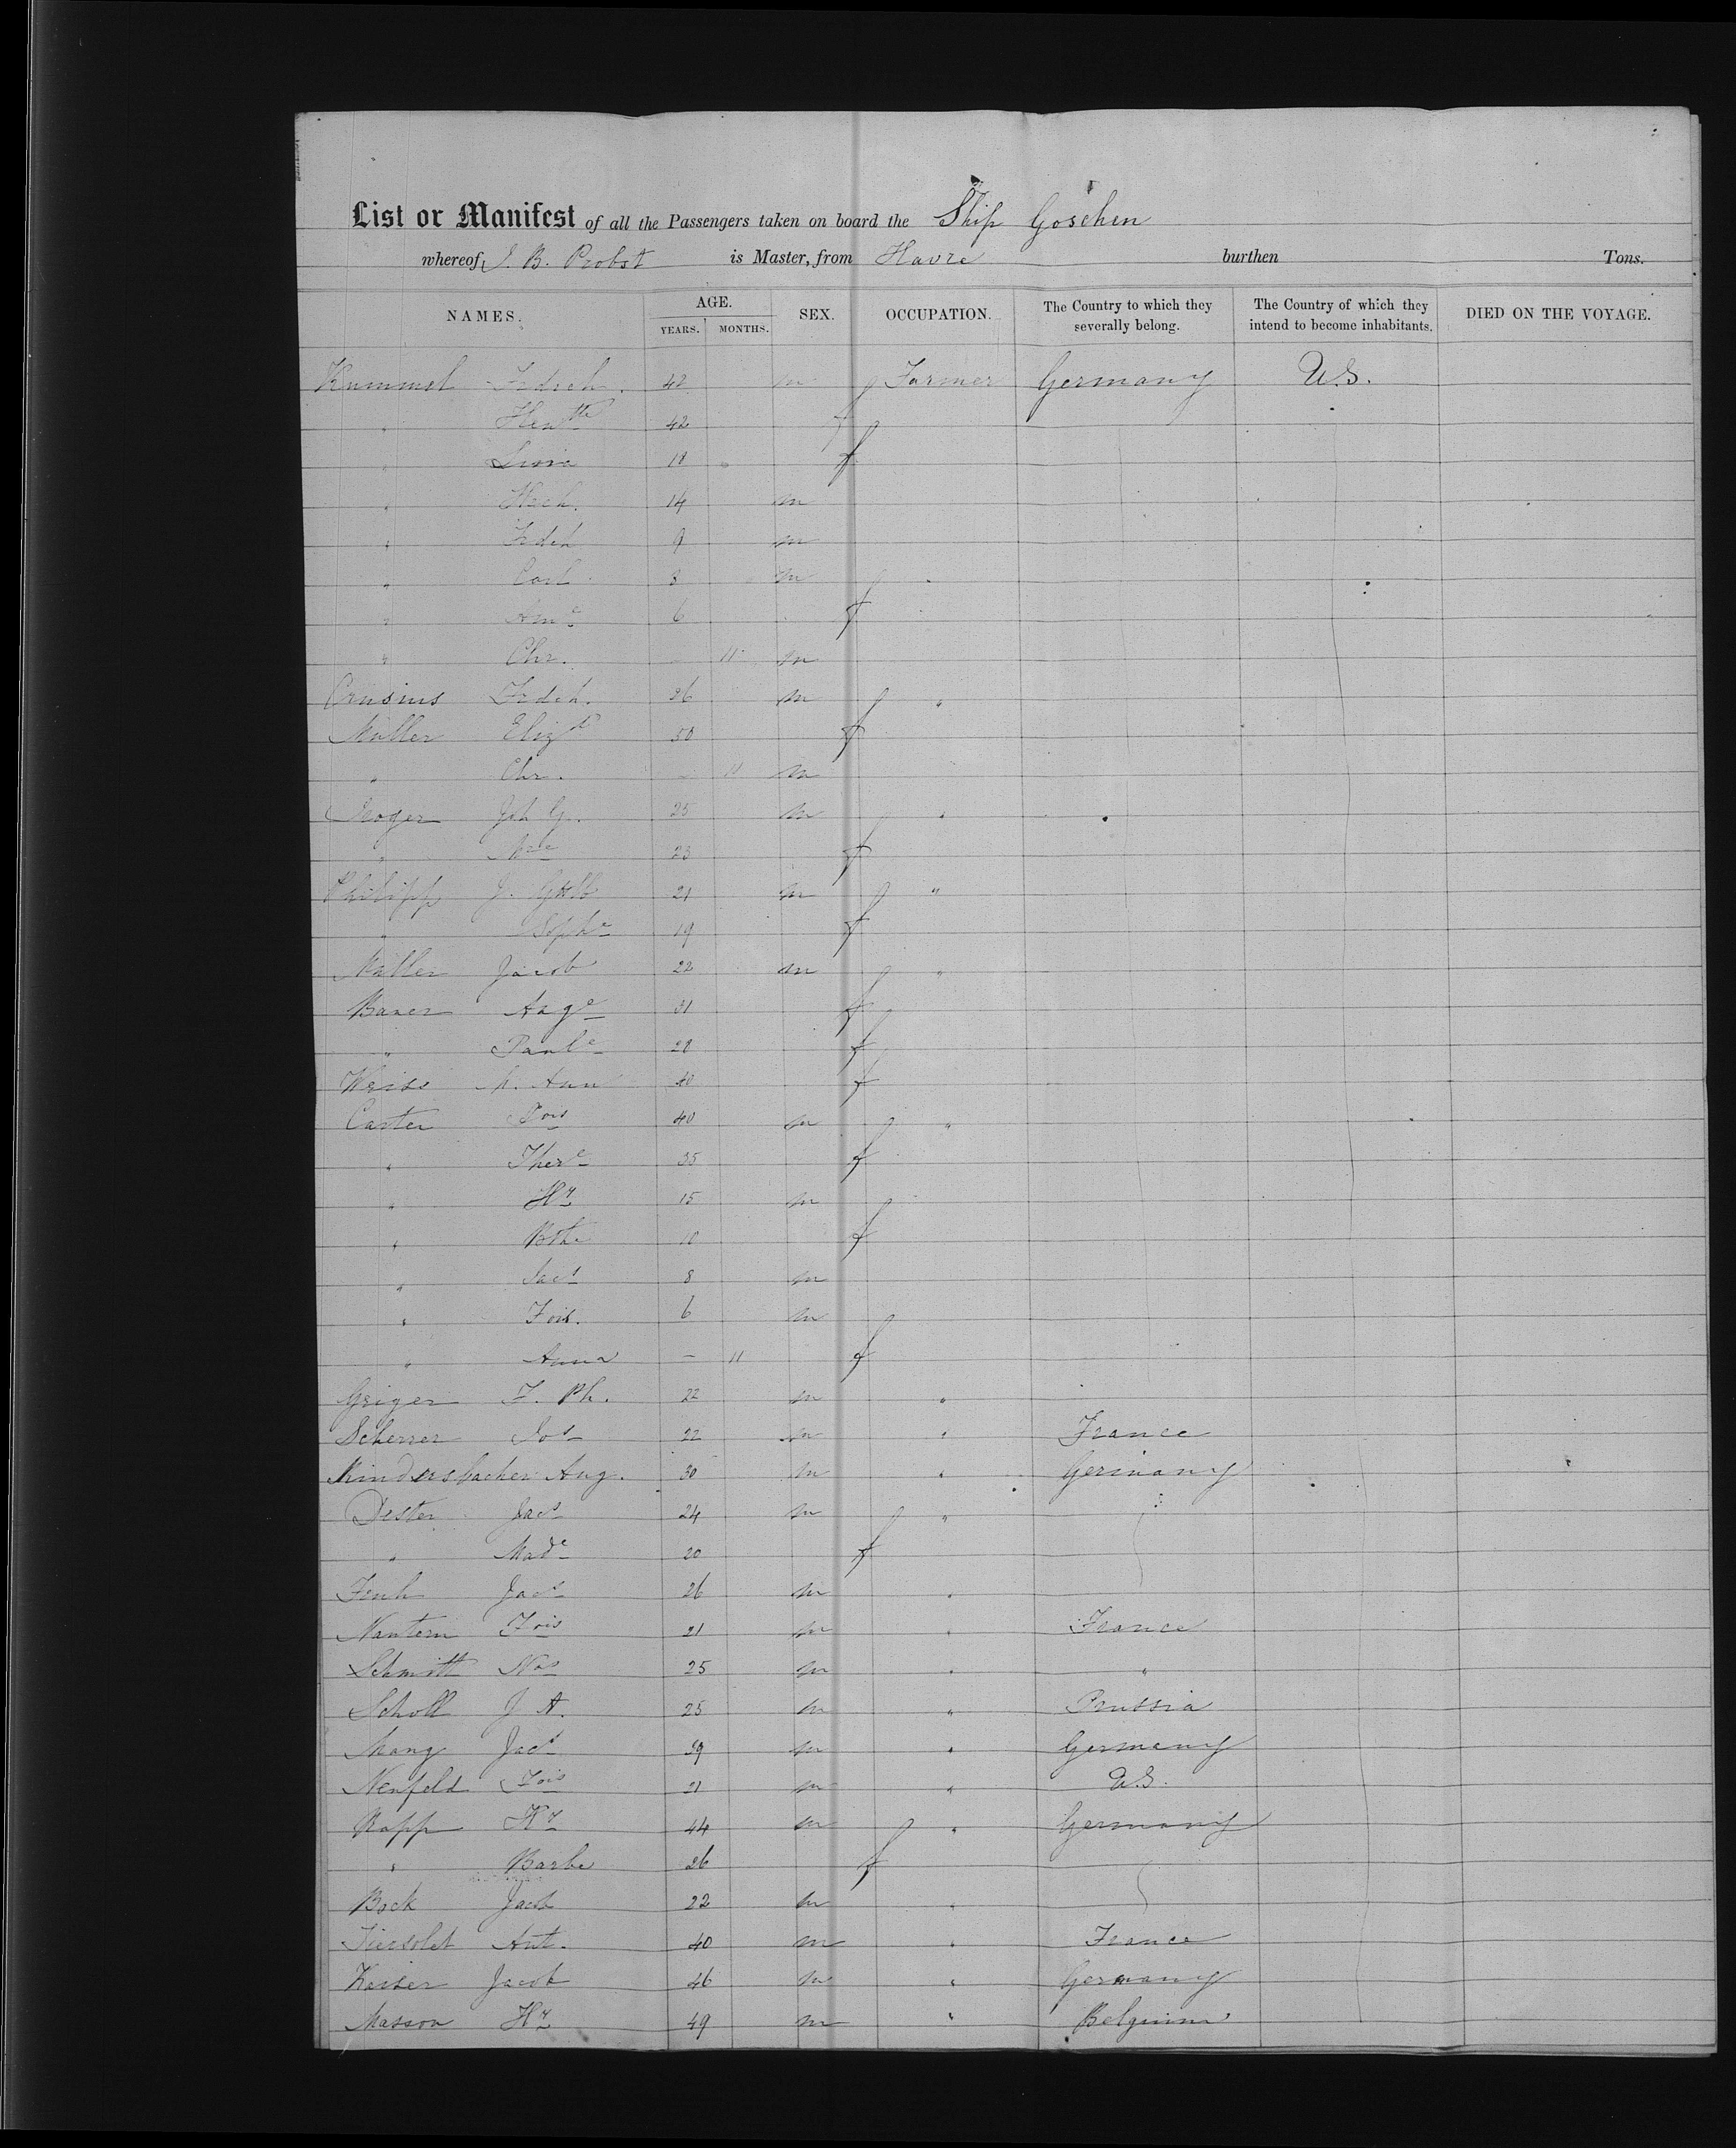 List or Manifest of all the Passengers taken on board the Ship Goschen
whereof J. B. Probst is Master, from Havre burthen Tons.
NAMES. AGE. YEARS. MONTHS. SEX. OCCUPATION. The Country to which they severally belong. The Country of which they intend to become inhabitants. DIED ON THE VOYAGE.
Kummel Frdch. 42 m Farmer Germany U.S.
" Hentte 42 f
" 18 f
" 14 m
" Frdch 9 m
" Carl 8 m
" 6 f
" Chr. - 11 m
Crusius Frdch. 26 m "
Müller Elizth 50 f
" Chr. - 11 m
Joh G. 25 m "
" 23 f
Philipp J. Gottlb 21 m "
" Sophe 19 f
Müller Jacob 22 m "
Bauer Auge 31 f
" Paule 28 f
Weiss M. Ann 40 f
Carter 40 m "
" There 35 f
" Hy 15 m
" 10 f
" Jacs 8 m
" Fois. 6 m
" Anna - 11 f
Geiger F. Ph. 22 m "
Scherrer Jos 22 m " France
Kindersbacher Aug. 30 m " Germany
Dester Jacs 24 m "
" Made 20 f
Fenh Jacs 26 m "
Nantern Fois 21 m " France
Schmitt Nos 25 m " "
Scholl J A. 25 m " Prussia
Mang Jacs 39 m " Germany
Neufeld Fois 21 m " U.S.
Rapp Hy 44 m " Germany
" Barbe 26 f
Bock Jacob 22 m "
Ant. 40 m " France
Kaiser Jacob 46 m " Germany
Masson Hy 49 m " Belgium